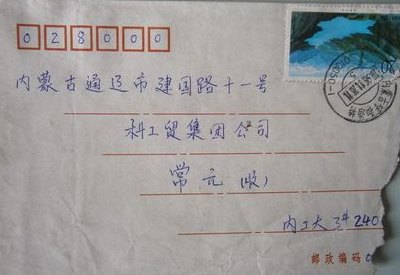 028000
内蒙古通辽市建国路十一号
科工贸集团公司
常元(收)
内工大3#240
邮政编码0